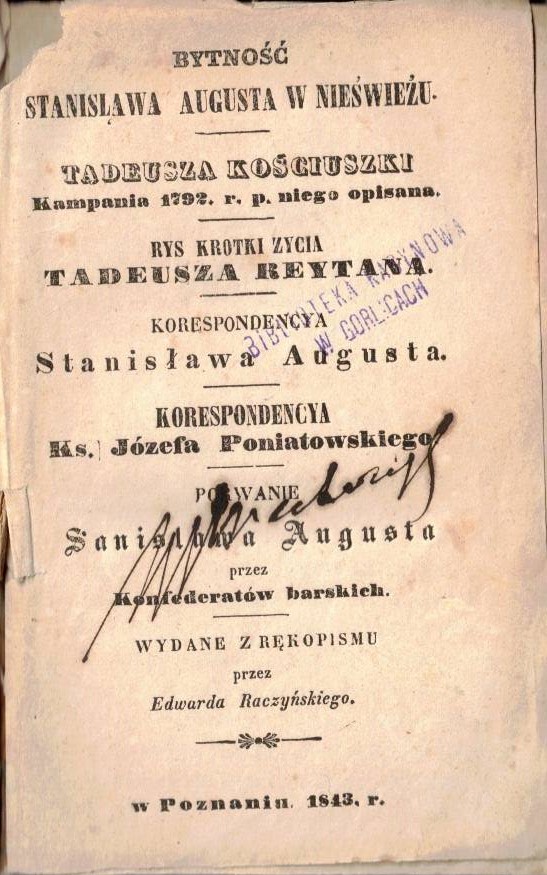 BYTNOŚĆ
STANISLAWA AUGUSTA W NIEŚWIEŻU.
TADEUSZA KOŚCIUSZKI
Kampania 1792. r. p. niego opisana.
RYS KROTKI ZYCIA
TADEUSZA REYTANA.
BIBLIOTEKA
W GORLICACH
KORESPONDENCYA
Stanisława Augusta.
KORESPONDENCYA
Ks. Józefa Poniatowskiego
PORWANIE
Sanisława Augusta
przez
Konfederatów barskich.
WYDANE Z RĘKOPISMU
przez
Edwarda Raczyńskiego.
w Poznaniu. 1843. r.